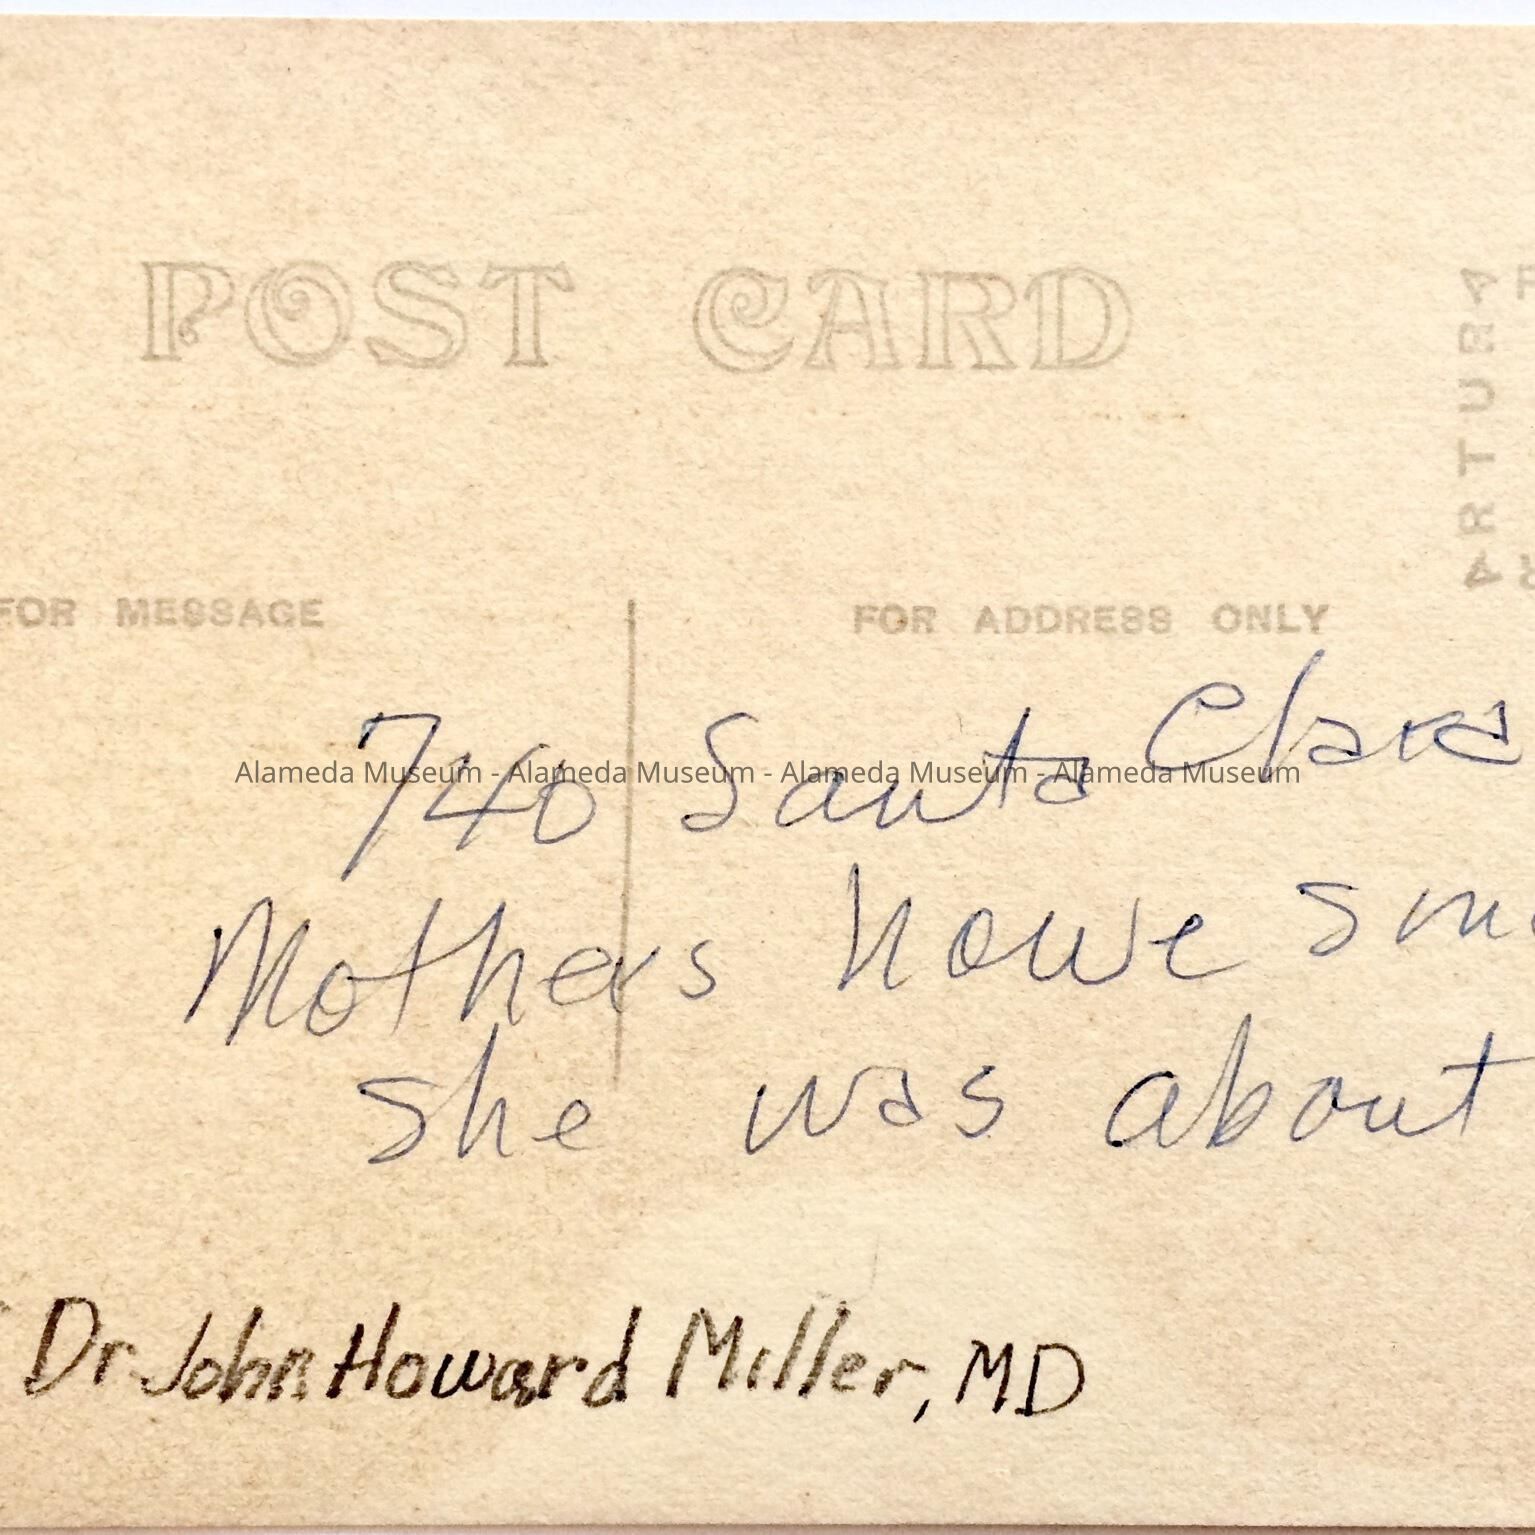 POST CARD
ARTURA
FOR MESSAGE
FOR ADDRESS ONLY
740 Santa Clara
Alameda Museum - Alameda Museum - Alameda Museum - Alameda Museum
Mothers home
she was about
Dr. John Howard Miller, MD